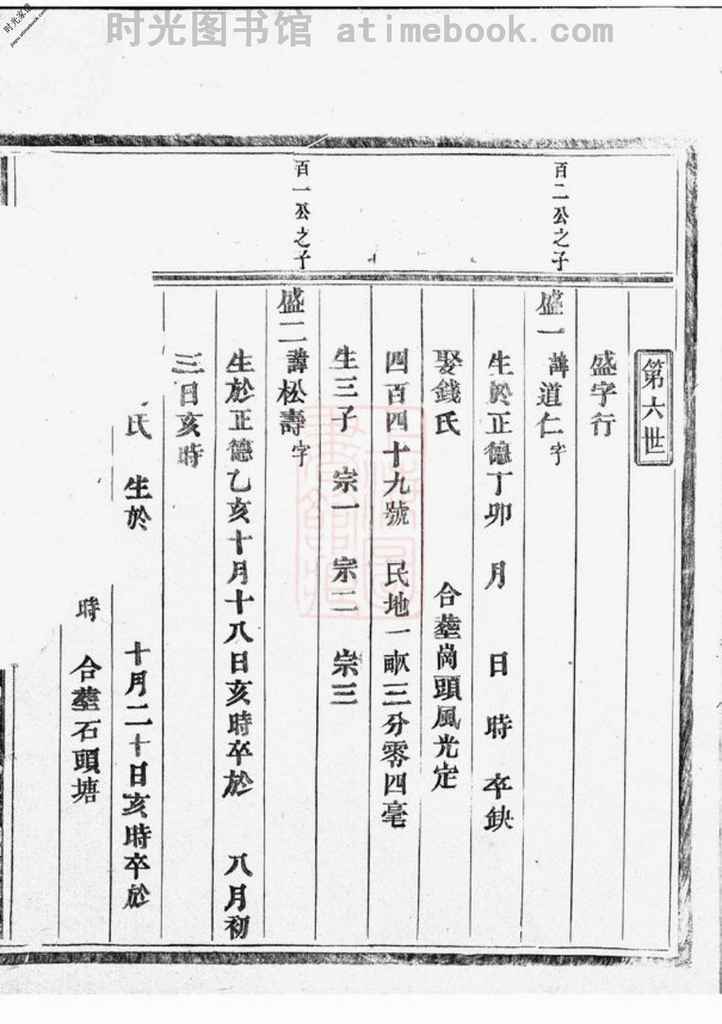 时光图书馆 atimebook.com
第六世
盛字行
百二公之子
盛一 諱道仁 字
生於正德丁卯 月 日 時 卒缺
娶錢氏 合塟崗頭風光定
四百四十九號 民地一畝三分零四毫
生三子 宗一 宗二 宗三
百一公之子
盛二 諱松壽 字
生於正德乙亥十月十八日亥時卒於 八月初
三日亥時
氏 生於 十月二十日亥時卒於
時 合塟石頭塘